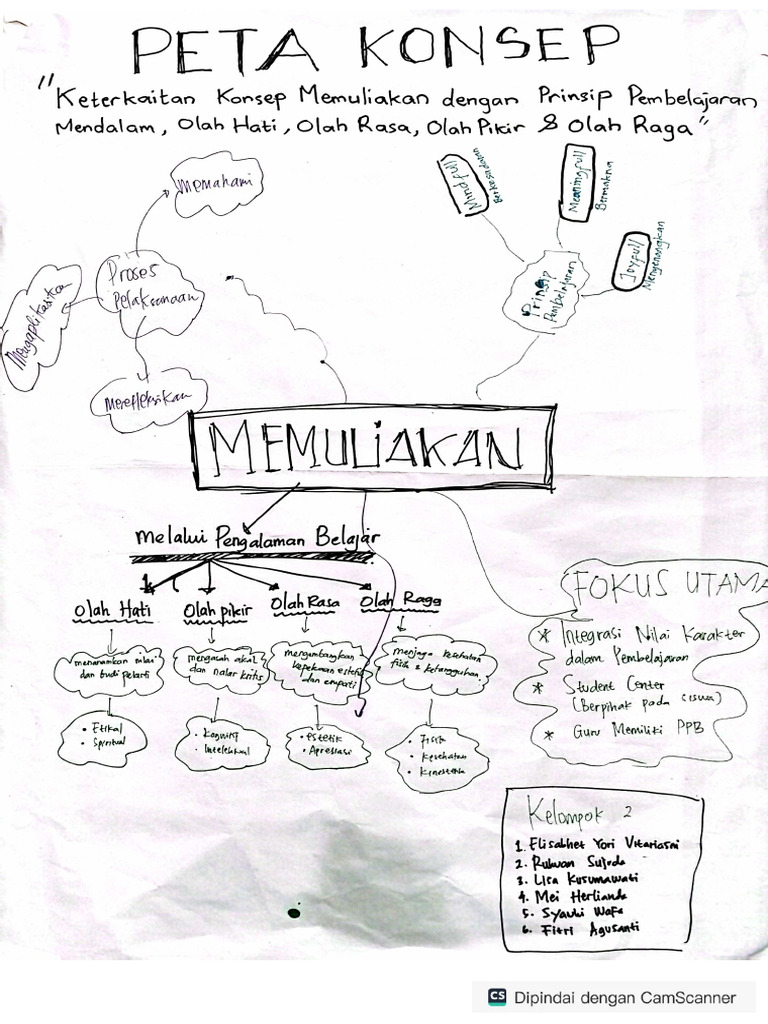 PETA KONSEP
"Keterkaitan Konsep Memuliakan dengan Prinsip Pembelajaran
Mendalam, Olah Hati, Olah Rasa, Olah Pikir & Olah Raga"
Memahami
Proses
Pelaksanaan
Mengaplikasikan
Merefleksikan
Mindfull
Berkesadaran
Meaningfull
Bermakna
Joyfull
Menyenangkan
Prinsip
Pembelajaran
MEMULIAKAN
Melalui Pengalaman Belajar
Olah Hati
menanamkan nilai
dan budi pekerti
• Etikal
• Spiritual
Olah pikir
mengasah akal
dan nalar kritis
• Kognitif
• Intelektual
Olah Rasa
mengembangkan
kepekaan estetik
dan empati
• estetik
• Apresiasi
Olah Raga
menjaga kesehatan
fisik & ketangguhan
• Fisik
• Kesehatan
• Kinestetik
FOKUS UTAMA
* Integrasi Nilai Karakter
dalam Pembelajaran
* Student Center
(Berpihak pada siswa)
* Guru Memiliki PPB
Kelompok 2
1. Elisabhet Yori Vitariasni
2. Ruhwan Sujoda
3. Lisa Kusumawati
4. Mei Herlianda
5. Syauki Wafa
6. Fitri Agusanti
CS Dipindai dengan CamScanner